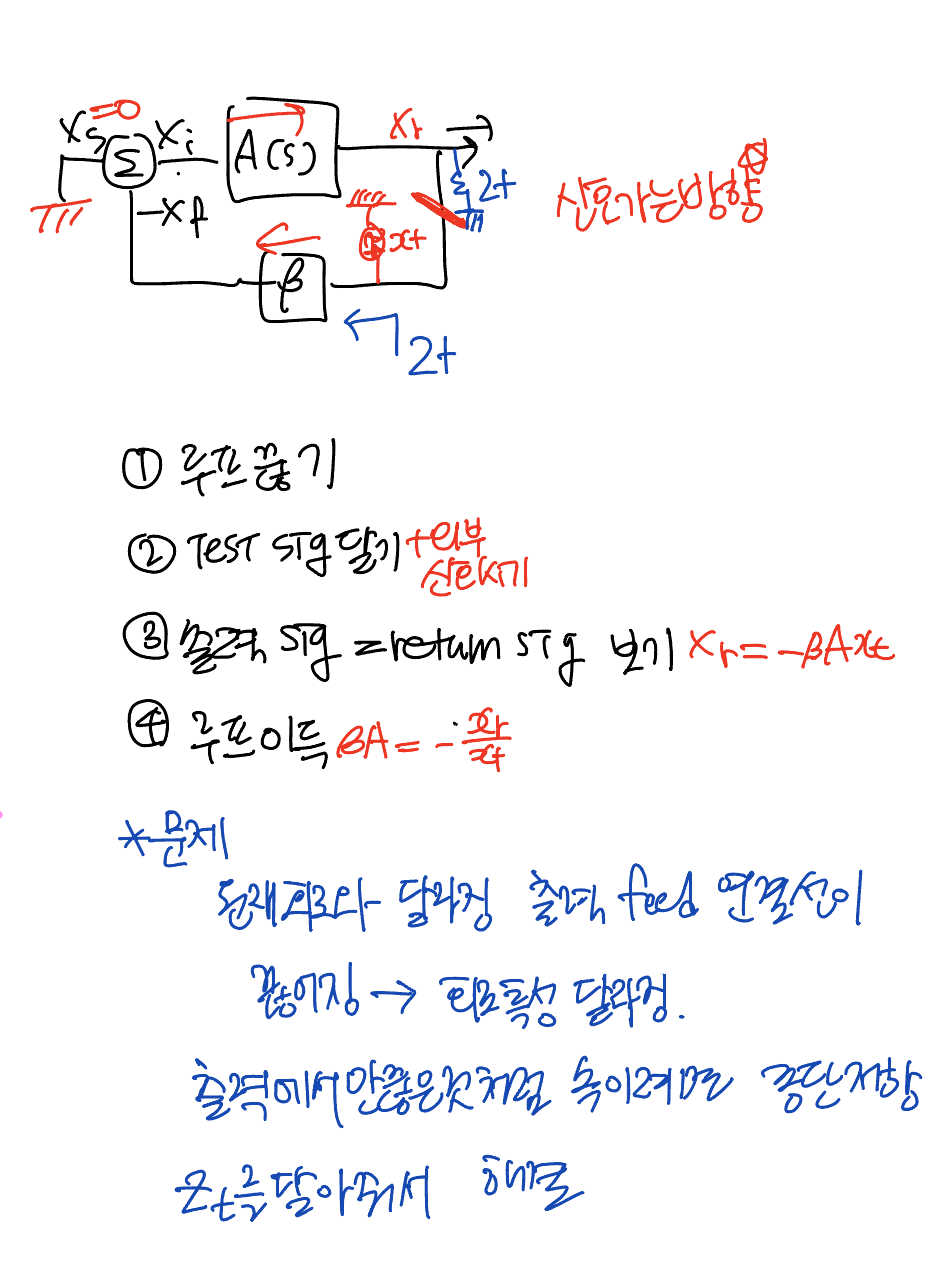 Xs=0
Xi
A(s)
Xr
Σ
-Xf
xt
Zt
신호가는방향
β
Zt
① 루프끊기
② Test sig 달기 +외부
신호죽이기
③ 출력 sig = return sig 보기 Xr = -βAxt
④ 루프이득 βA = - xr/xt
*문제
원래회로와 달라짐 출력 feed 연결선이
끊어짐 → 회로특성 달라짐.
출력에서 안끊은것처럼 속이려면 종단저항
Zt를 달아줘서 해결